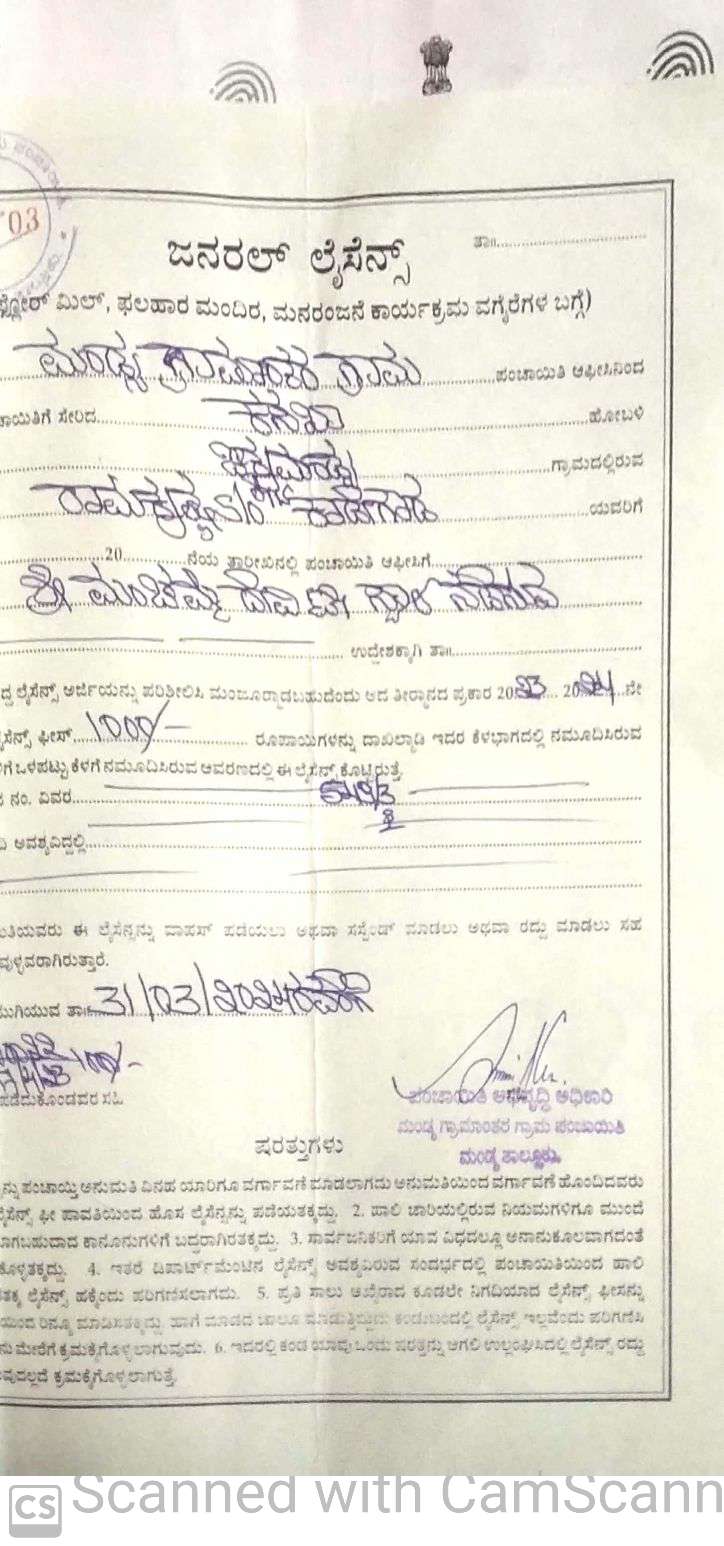 03
ಜನರಲ್ ಲೈಸೆನ್ಸ್
ತಾ॥
ಫ್ಲೋರ್ ಮಿಲ್, ಫಲಹಾರ ಮಂದಿರ, ಮನರಂಜನೆ ಕಾರ್ಯಕ್ರಮ ವಗೈರೆಗಳ ಬಗ್ಗೆ)
ಮಂಡ್ಯ ಗ್ರಾಮಾಂತರ ಗ್ರಾಮ ಪಂಚಾಯಿತಿ ಆಫೀಸಿನಿಂದ
ಚಾಯಿತಿಗೆ ಸೇರಿದ ಕಸಬಾ ಹೋಬಳಿ
ಚಿಕ್ಕಮಂಡ್ಯ ಗ್ರಾಮದಲ್ಲಿರುವ
ರಾಮಕೃಷ್ಣ S/o ಯವರಿಗೆ
20 ನೆಯ ತಾರೀಖಿನಲ್ಲಿ ಪಂಚಾಯಿತಿ ಆಫೀಸಿಗೆ
ಶ್ರೀ ಮಂಚಮ್ಮ ದೇವಿ ಟೀ ಸ್ಟಾಲ್ ನಡೆಸುವ
ಉದ್ದೇಶಕ್ಕಾಗಿ ತಾ॥
ದ್ದ ಲೈಸೆನ್ಸ್ ಅರ್ಜಿಯನ್ನು ಪರಿಶೀಲಿಸಿ ಮಂಜೂರ್ಮಾಡಬಹುದೆಂದು ಆದ ತೀರ್ಮಾನದ ಪ್ರಕಾರ 20೨೩ 20೨೪ ನೇ
ಸೆನ್ಸ್ ಫೀಸ್ 1000/- ರೂಪಾಯಿಗಳನ್ನು ದಾಖಲ್ಮಾಡಿ ಇದರ ಕೆಳಭಾಗದಲ್ಲಿ ನಮೂದಿಸಿರುವ
ಗೆ ಒಳಪಟ್ಟು ಕೆಳಗೆ ನಮೂದಿಸಿರುವ ಆವರಣದಲ್ಲಿ ಈ ಲೈಸೆನ್ಸ್ ಕೊಟ್ಟಿರುತ್ತೆ.
ನಂ. ವಿವರ
ಅವಶ್ಯವಿದ್ದಲ್ಲಿ
ತಿಯವರು ಈ ಲೈಸೆನ್ಸನ್ನು ವಾಪಸ್ ಪಡೆಯಲು ಅಥವಾ ಸಸ್ಪೆಂಡ್ ಮಾಡಲು ಅಥವಾ ರದ್ದು ಮಾಡಲು ಸಹ
ವುಳ್ಳವರಾಗಿರುತ್ತಾರೆ.
ಮುಗಿಯುವ ತಾ॥ 31/03/೨೦೨೪ರವರೆಗೆ
100/-
ಪಡೆದುಕೊಂಡವರ ಸಹಿ
ಪಂಚಾಯಿತಿ ಅಭಿವೃದ್ಧಿ ಅಧಿಕಾರಿ
ಮಂಡ್ಯ ಗ್ರಾಮಾಂತರ ಗ್ರಾಮ ಪಂಚಾಯಿತಿ
ಮಂಡ್ಯ ತಾಲ್ಲೂಕು.
ಷರತ್ತುಗಳು
ನ್ನು ಪಂಚಾಯ್ತಿ ಅನುಮತಿ ವಿನಹ ಯಾರಿಗೂ ವರ್ಗಾವಣೆ ಮಾಡಲಾಗದು ಅನುಮತಿಯಿಂದ ವರ್ಗಾವಣೆ ಹೊಂದಿದವರು
ಸೆನ್ಸ್ ಫೀ ಪಾವತಿಯಿಂದ ಹೊಸ ಲೈಸೆನ್ಸನ್ನು ಪಡೆಯತಕ್ಕದ್ದು. 2. ಹಾಲಿ ಜಾರಿಯಲ್ಲಿರುವ ನಿಯಮಗಳಿಗೂ ಮುಂದೆ
ಗಬಹುದಾದ ಕಾನೂನುಗಳಿಗೆ ಬದ್ಧರಾಗಿರತಕ್ಕದ್ದು. 3. ಸಾರ್ವಜನಿಕರಿಗೆ ಯಾವ ವಿಧದಲ್ಲೂ ಅನಾನುಕೂಲವಾಗದಂತೆ
ಕೊಳ್ಳತಕ್ಕದ್ದು. 4. ಇತರೆ ಡಿಪಾರ್ಟ್‌ಮೆಂಟಿನ ಲೈಸೆನ್ಸ್ ಅವಶ್ಯವಿರುವ ಸಂದರ್ಭದಲ್ಲಿ ಪಂಚಾಯಿತಿಯಿಂದ ಹಾಲಿ
ತಕ್ಕ ಲೈಸೆನ್ಸ್ ಹಕ್ಕೆಂದು ಪರಿಗಣಿಸಲಾಗದು. 5. ಪ್ರತಿ ಸಾಲು ಆಖೈರಾದ ಕೂಡಲೇ ನಿಗದಿಯಾದ ಲೈಸೆನ್ಸ್ ಫೀಸನ್ನು
ಯಿಂದ ರಿನ್ಯೂ ಮಾಡಿಸತಕ್ಕದ್ದು. ಹಾಗೆ ಮಾಡದೆ ಚಾಲೂ ಮಾಡುತ್ತಿದ್ದುದು ಕಂಡುಬಂದಲ್ಲಿ ಲೈಸೆನ್ಸ್ ಇಲ್ಲವೆಂದು ಪರಿಗಣಿಸಿ
ನು ಮೇರೆಗೆ ಕ್ರಮಕೈಗೊಳ್ಳಲಾಗುವುದು. 6. ಇದರಲ್ಲಿ ಕಂಡ ಯಾವು ಒಂದು ಷರತ್ತನ್ನು ಆಗಲಿ ಉಲ್ಲಂಘಿಸಿದಲ್ಲಿ ಲೈಸೆನ್ಸ್ ರದ್ದು
ವುದಲ್ಲದೆ ಕ್ರಮಕೈಗೊಳ್ಳಲಾಗುತ್ತೆ.
CS Scanned with CamScann